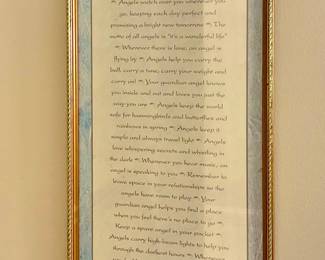 Angels watch over you wherever you
go, keeping each day perfect and
promising a bright new tomorrow The
motto of all angels is "it's a wonderful life"
Whenever there is love, an angel is
flying by Angels help you carry the
ball, carry a tune, carry your weight and
carry on! Your guardian angel knows
you inside and out and loves you just the
way you are Angels keep the world
safe for hummingbirds and butterflies and
rainbows in spring Angels keep it
simple and always travel light Angels
love whispering secrets and whistling in
the dark Whenever you hear music, an
angel is speaking to you Remember to
leave space in your relationships so the
angels have room to play Your
guardian angel helps you find a place
when you feel there's no place to go
Keep a spare angel in your pocket
Angels carry high-beam lights to help you
through the darkest hours Whenever